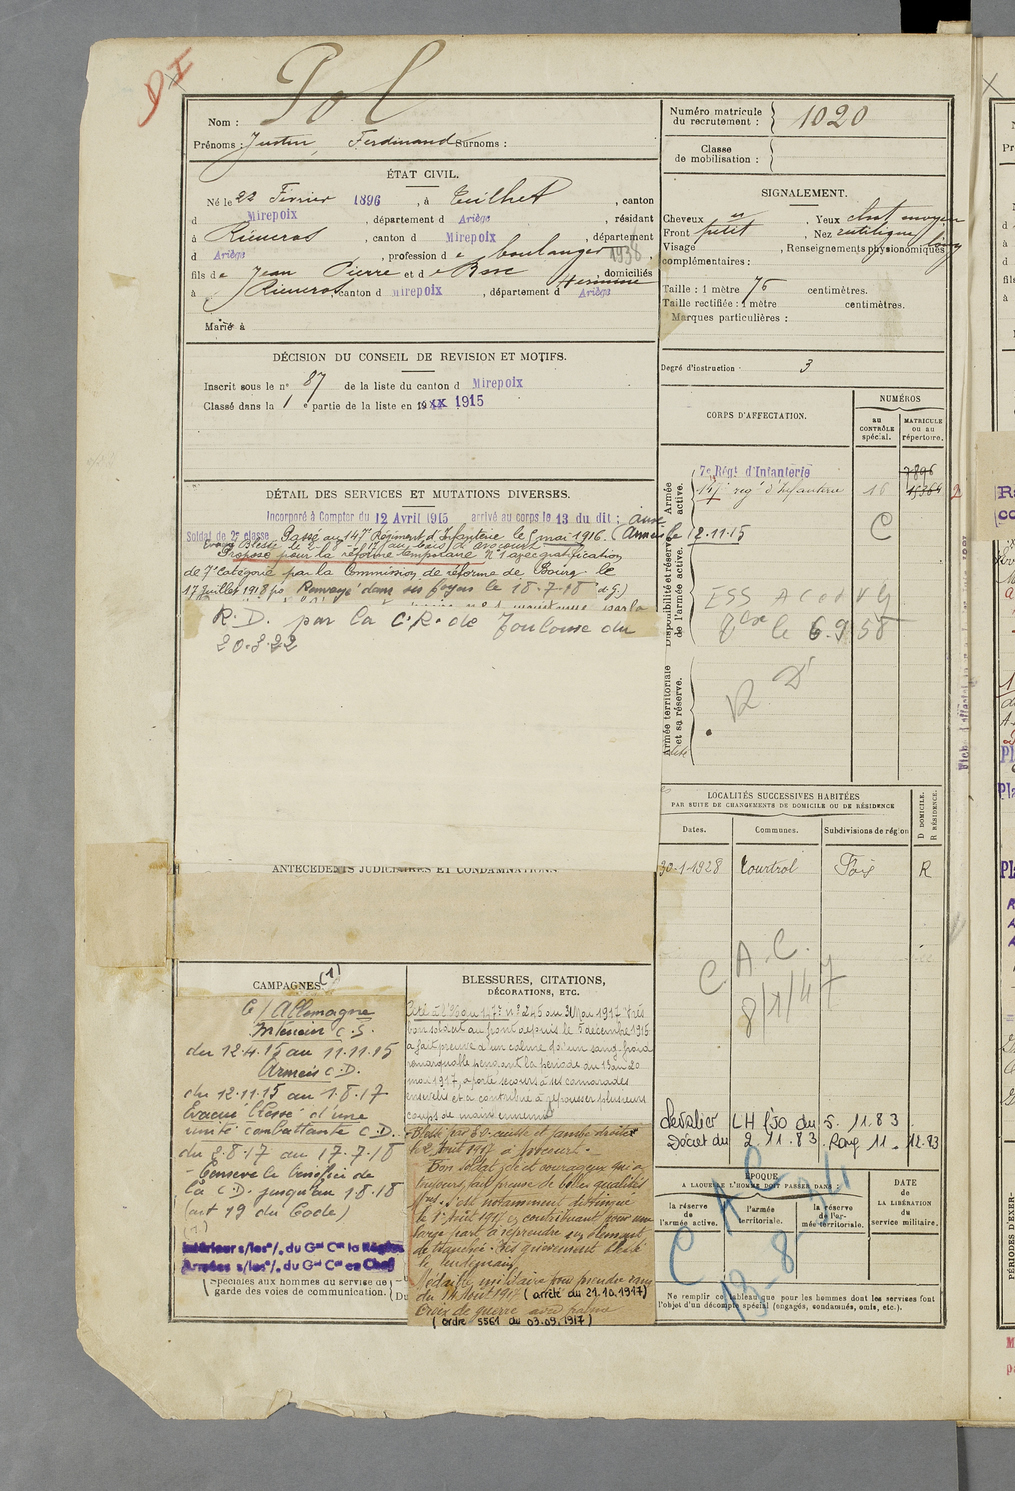 Pol
Nom :
Prénoms : Justin, Ferdinand Surnoms :
Numéro matricule du recrutement : 1020
Classe de mobilisation :
ÉTAT CIVIL.
Né le 22 Février 1896, à Teilhet, canton
d Mirepoix, département d Ariège, résidant
à Rieucros, canton d Mirepoix, département
d Ariège, profession de boulanger
1938
fils de Jean Pierre et de Bosc
, domiciliés
à Rieucros, canton d Mirepoix, département d Ariège
Marié à
SIGNALEMENT.
Cheveux Yeux chat moyen
Front petit Nez rectiligne
Visage long, Renseignements physionomiques
complémentaires :
Taille : 1 mètre 76 centimètres.
Taille rectifiée : 1 mètre centimètres.
Marques particulières :
Degré d'instruction 3
DÉCISION DU CONSEIL DE REVISION ET MOTIFS.
Inscrit sous le n° 87 de la liste du canton d Mirepoix
Classé dans la 1 e partie de la liste en 19xx 1915
CORPS D'AFFECTATION.
NUMÉROS
au CONTRÔLE spécial.
MATRICULE ou au répertoire.
Armée active.
7e Régt d'Infanterie
147e reg' d'Infanterie 16
C
Disponibilité et réserve de l'armée active.
le 6.9.58
Armée territoriale et sa réserve.
R D
DÉTAIL DES SERVICES ET MUTATIONS DIVERSES.
Incorporé à Compter du 12 Avril 1915 arrivé au corps le 13 du dit ; aux
Armées le 12.11.15
Soldat de 2e classe Passé au 147e Régiment d'Infanterie le 5 mai 1916.
Evacué Blessé le 2-8-1917 au bois d'Avocourt
Proposé pour la réforme temporaire N° 1 avec gratification
de 7e Catégorie par la Commission de réforme de Bourg le
17 juillet 1918 Renvoyé dans ses foyers le 18-7-18
R.D. par la C.R. de Toulouse du
20.3.22
ANTÉCÉDENTS JUDICIAIRES ET CONDAMNATIONS
LOCALITÉS SUCCESSIVES HABITÉES
PAR SUITE DE CHANGEMENTS DE DOMICILE OU DE RÉSIDENCE
Dates. Communes. Subdivisions de région D DOMICILE. R RÉSIDENCE.
30-1-1928 Tourtrol Foix R
C.A.C.
8/1/47
Chevalier LH f/30 du 5.11.83
Décret du 2.11.83. Rang 11-12.83
CAMPAGNES (1)
C/Allemagne
Intérieur C.S.
du 12.4.15 au 11.11.15
Armées C.D.
du 12.11.15 au 1.8.17
Evacué blessé d'une
unité combattante C.D.
du 2.8.17 au 17.7.18
- Conserve le bénéfice de
la C.D. jusqu'au 1.8.18
(art 19 du Code)
(1)
Intérieur s/les o/. du Gal Ct la Région
Armées s/les o/. du Gal Ct en Chef
Spéciales aux hommes du service de
garde des voies de communication.
Du
BLESSURES, CITATIONS,
DÉCORATIONS, ETC.
Cité à l'O du 147e n° 245 du 30 Mai 1917 Très
bon soldat au front depuis le 5 décembre 1915
a fait preuve d'un calme et d'un sang-froid
remarquable pendant la période du 13 au 20
mai 1917, a porté secours à ses camarades
ensevelis et a contribué à repousser plusieurs
coups de main ennemis
Blessé par E.O. cuisse et jambe droites
le 2 Août 1917 à Avocourt.
Bon soldat, dévoué et courageux qui a
toujours fait preuve de belles qualités
Mres. S'est notamment distingué
le 1er Août 1917 en contribuant pour une
large part à reprendre un élément
de tranchée. Très grièvement blessé
le lendemain
Médaille militaire pour prendre rang
du 14 Août 1917 (arrêté du 21.10.1917)
Croix de guerre avec palme
(ordre 5561 du 03.09.1917)
ÉPOQUE
A LAQUELLE L'HOMME DOIT PASSER DANS :
la réserve de l'armée active.
l'armée territoriale.
la réserve de l'armée territoriale.
DATE DE LA LIBÉRATION du service militaire.
C A C
13-8-34
Ne remplir ce tableau que pour les hommes dont les services font
l'objet d'un décompte spécial (engagés, condamnés, omis, etc.).